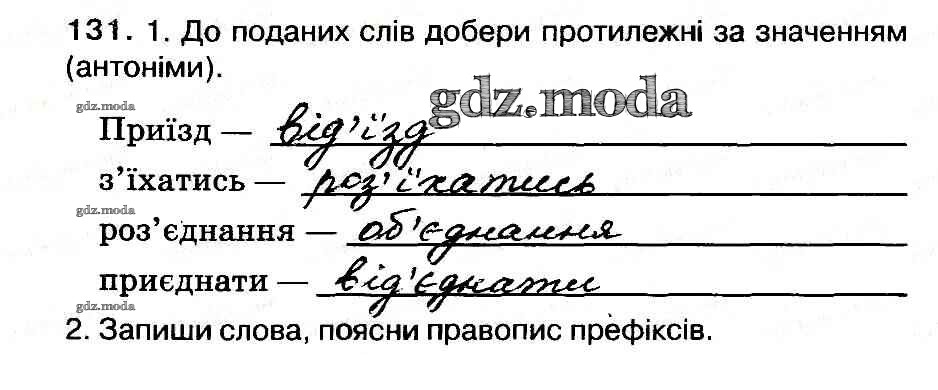 131. 1. До поданих слів добери протилежні за значенням
(антоніми).
gdz.moda
gdz.moda
Приїзд — від'їзд
з'їхатись — роз'їхатись
gdz.moda
роз'єднання — об'єднання
приєднати — від'єднати
gdz.moda
2. Запиши слова, поясни правопис префіксів.